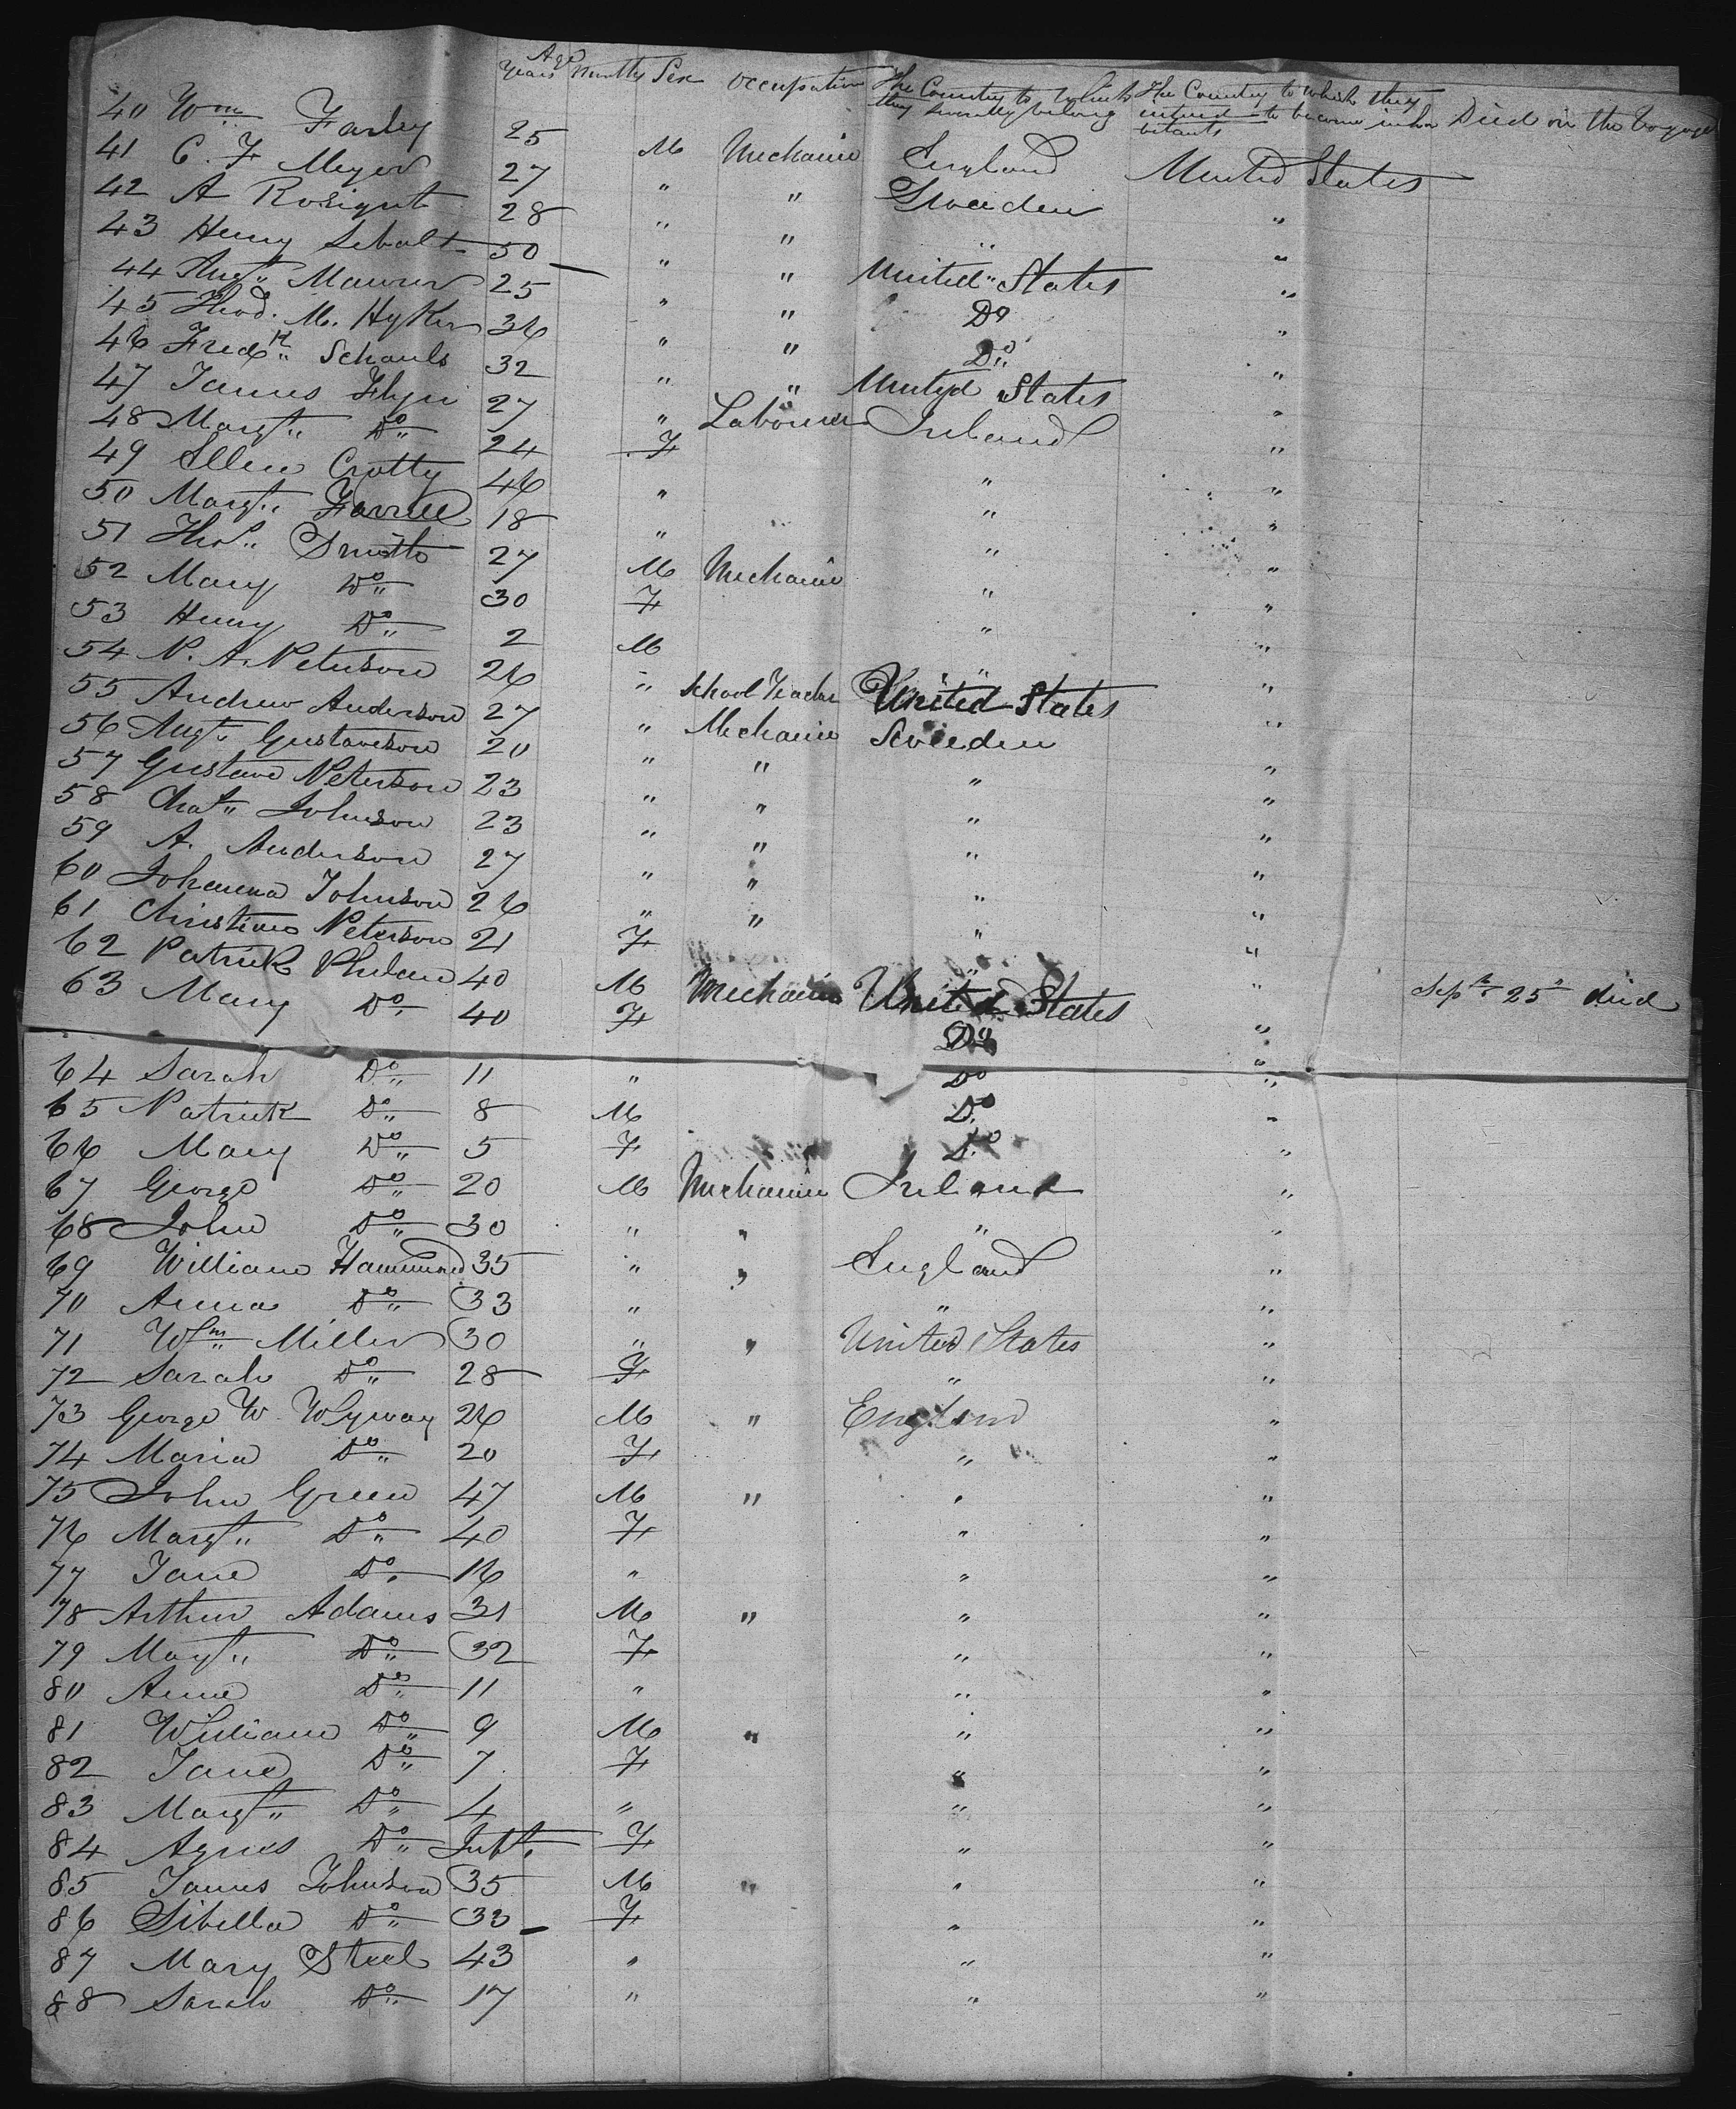 Age
Years Months Sex Occupation The Country to which they severally belong The Country to which they intend to become inhabitants Died on the Voyage
40 Wm Farley 25 M Mechanic England United States
41 C. F. Meyer 27 " " Sweeden "
42 A 28 " " " "
43 Henry 50 " " United States "
44 Augt. Maurer 25 " " Do "
45 Thod. M. Hyker 36 " " Do "
46 Fredk. Schauls 32 " " United States "
47 James Flyn 27 " Labourer Ireland "
48 Margt. Do 24 F "
49 Ellen Crotty 46 " " "
50 Margt. Farrell 18 " " "
51 Thos. Smith 27 M Mechanic " "
52 Mary Do 30 F " "
53 Henry Do 2 M " "
54 P. A. Peterson 26 " School Teacher United States "
55 Andrew Anderson 27 " Mechanic Sweeden "
56 Augt. Gustaveson 20 " " " "
57 Gustave Peterson 23 " " " "
58 Chas. Johnson 23 " " " "
59 A. Anderson 27 " " " "
60 Johanna Johnson 26 " " " "
61 Christine Peterson 21 F " "
62 Patrick Phelan 40 M Mechanic United States " Sept 25 died
63 Mary Do 40 F Do "
64 Sarah Do 11 " Do "
65 Patrick Do 8 M Do "
66 Mary Do 5 F Do "
67 George Do 20 M Mechanic Ireland "
68 John Do 30 " " " "
69 William Hammond 35 " " England "
70 Anna Do 33 " " "
71 Wm Miller 30 " " United States "
72 Sarah Do 28 F " "
73 George W. Wyway 26 M " England "
74 Maria Do 20 F " "
75 John Green 47 M " " "
76 Margt. Do 40 F " "
77 Jane Do 16 " " "
78 Arthur Adams 31 M " " "
79 Margt. Do 32 F " "
80 Anne Do 11 " " "
81 William Do 9 M " " "
82 Jane Do 7 F " "
83 Margt. Do 4 " " "
84 Agnes Do Inft. F " "
85 James Johnson 35 M " " "
86 Sibella Do 33 F " "
87 Mary Steel 43 " " "
88 Sarah Do 17 " " "